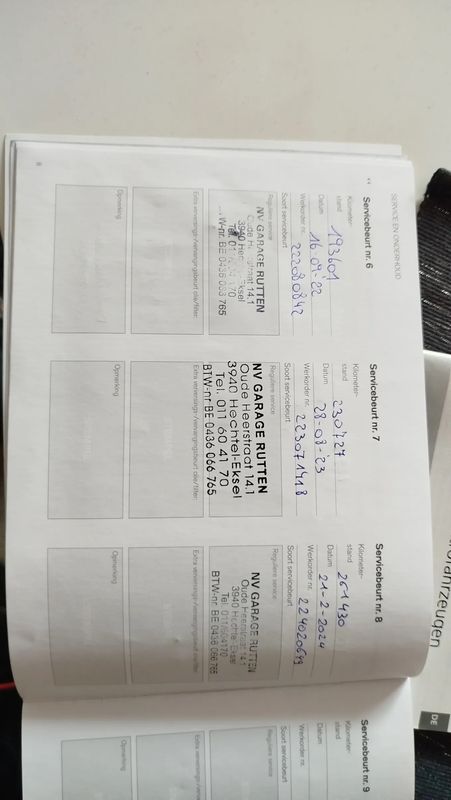 SERVICE EN ONDERHOUD
Servicebeurt nr. 6
Kilometer-
stand 193601
Datum 16.09.'22
Werkorder nr. 222080842
Soort servicebeurt
Reguliere service
NV GARAGE RUTTEN
Oude Heerstraat 14.1
3940 Hechtel-Eksel
Tel. 011 60 41 70
BTW-nr. BE 0436 066 765
Extra verversings-/vervangingsbeurt olie/filter:
Opmerking
8
Servicebeurt nr. 7
Kilometer-
stand 230727
Datum 28-08-'23
Werkorder nr. 223071418
Soort servicebeurt
Reguliere service
NV GARAGE RUTTEN
Oude Heerstraat 14.1
3940 Hechtel-Eksel
Tel. 011 60 41 70
BTW-nr. BE 0436 066 765
Extra verversings-/vervangingsbeurt olie/filter:
Opmerking
Servicebeurt nr. 8
Kilometer-
stand 261430
Datum 21-2-2024
Werkorder nr.
Soort servicebeurt
Reguliere service
NV GARAGE RUTTEN
Oude Heerstraat 14.1
3940 Hechtel-Eksel
Tel. 011604170
BTW-nr. BE 0436 066 765
Extra verversings-/vervangingsbeurt olie/filter:
Opmerking
Servicebeurt nr. 9
Kilometer-
stand
Datum
Werkorder nr.
Soort servicebeurt
Reguliere service
Extra verversings-/
Opmerking
fahrzeugen
DE